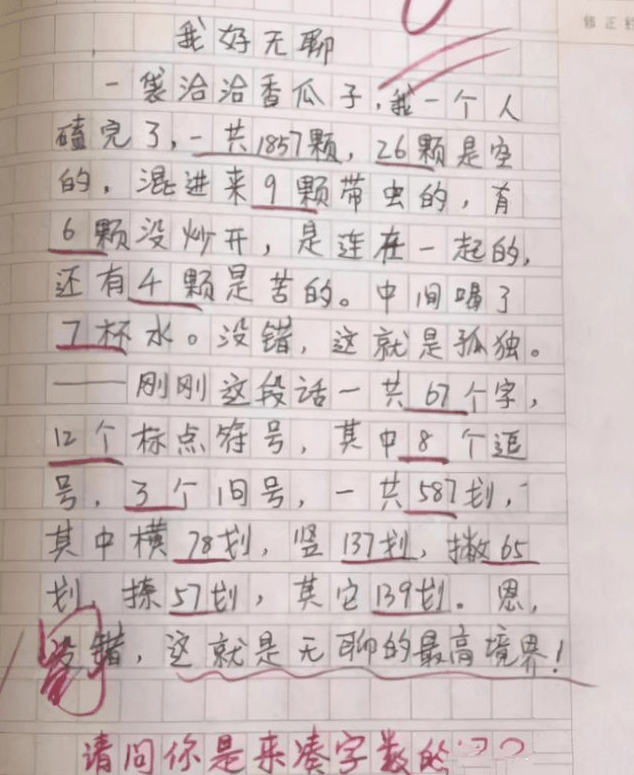 修正
我好无聊
一袋洽洽香瓜子,我一个人
磕完了,一共1857颗,26颗是空
的,混进来9颗带虫的,有
6颗没炒开,是连在一起的,
还有4颗是苦的。中间喝了
7杯水。没错,这就是孤独。
——刚刚这段话一共67个字,
12个标点符号,其中8个逗
号,3个旧号,一共587划,
其中横78划,竖137划,撇65
划,捺57划,其它139划。恩,
没错,这就是无聊的最高境界!
请问你是来凑字数的??